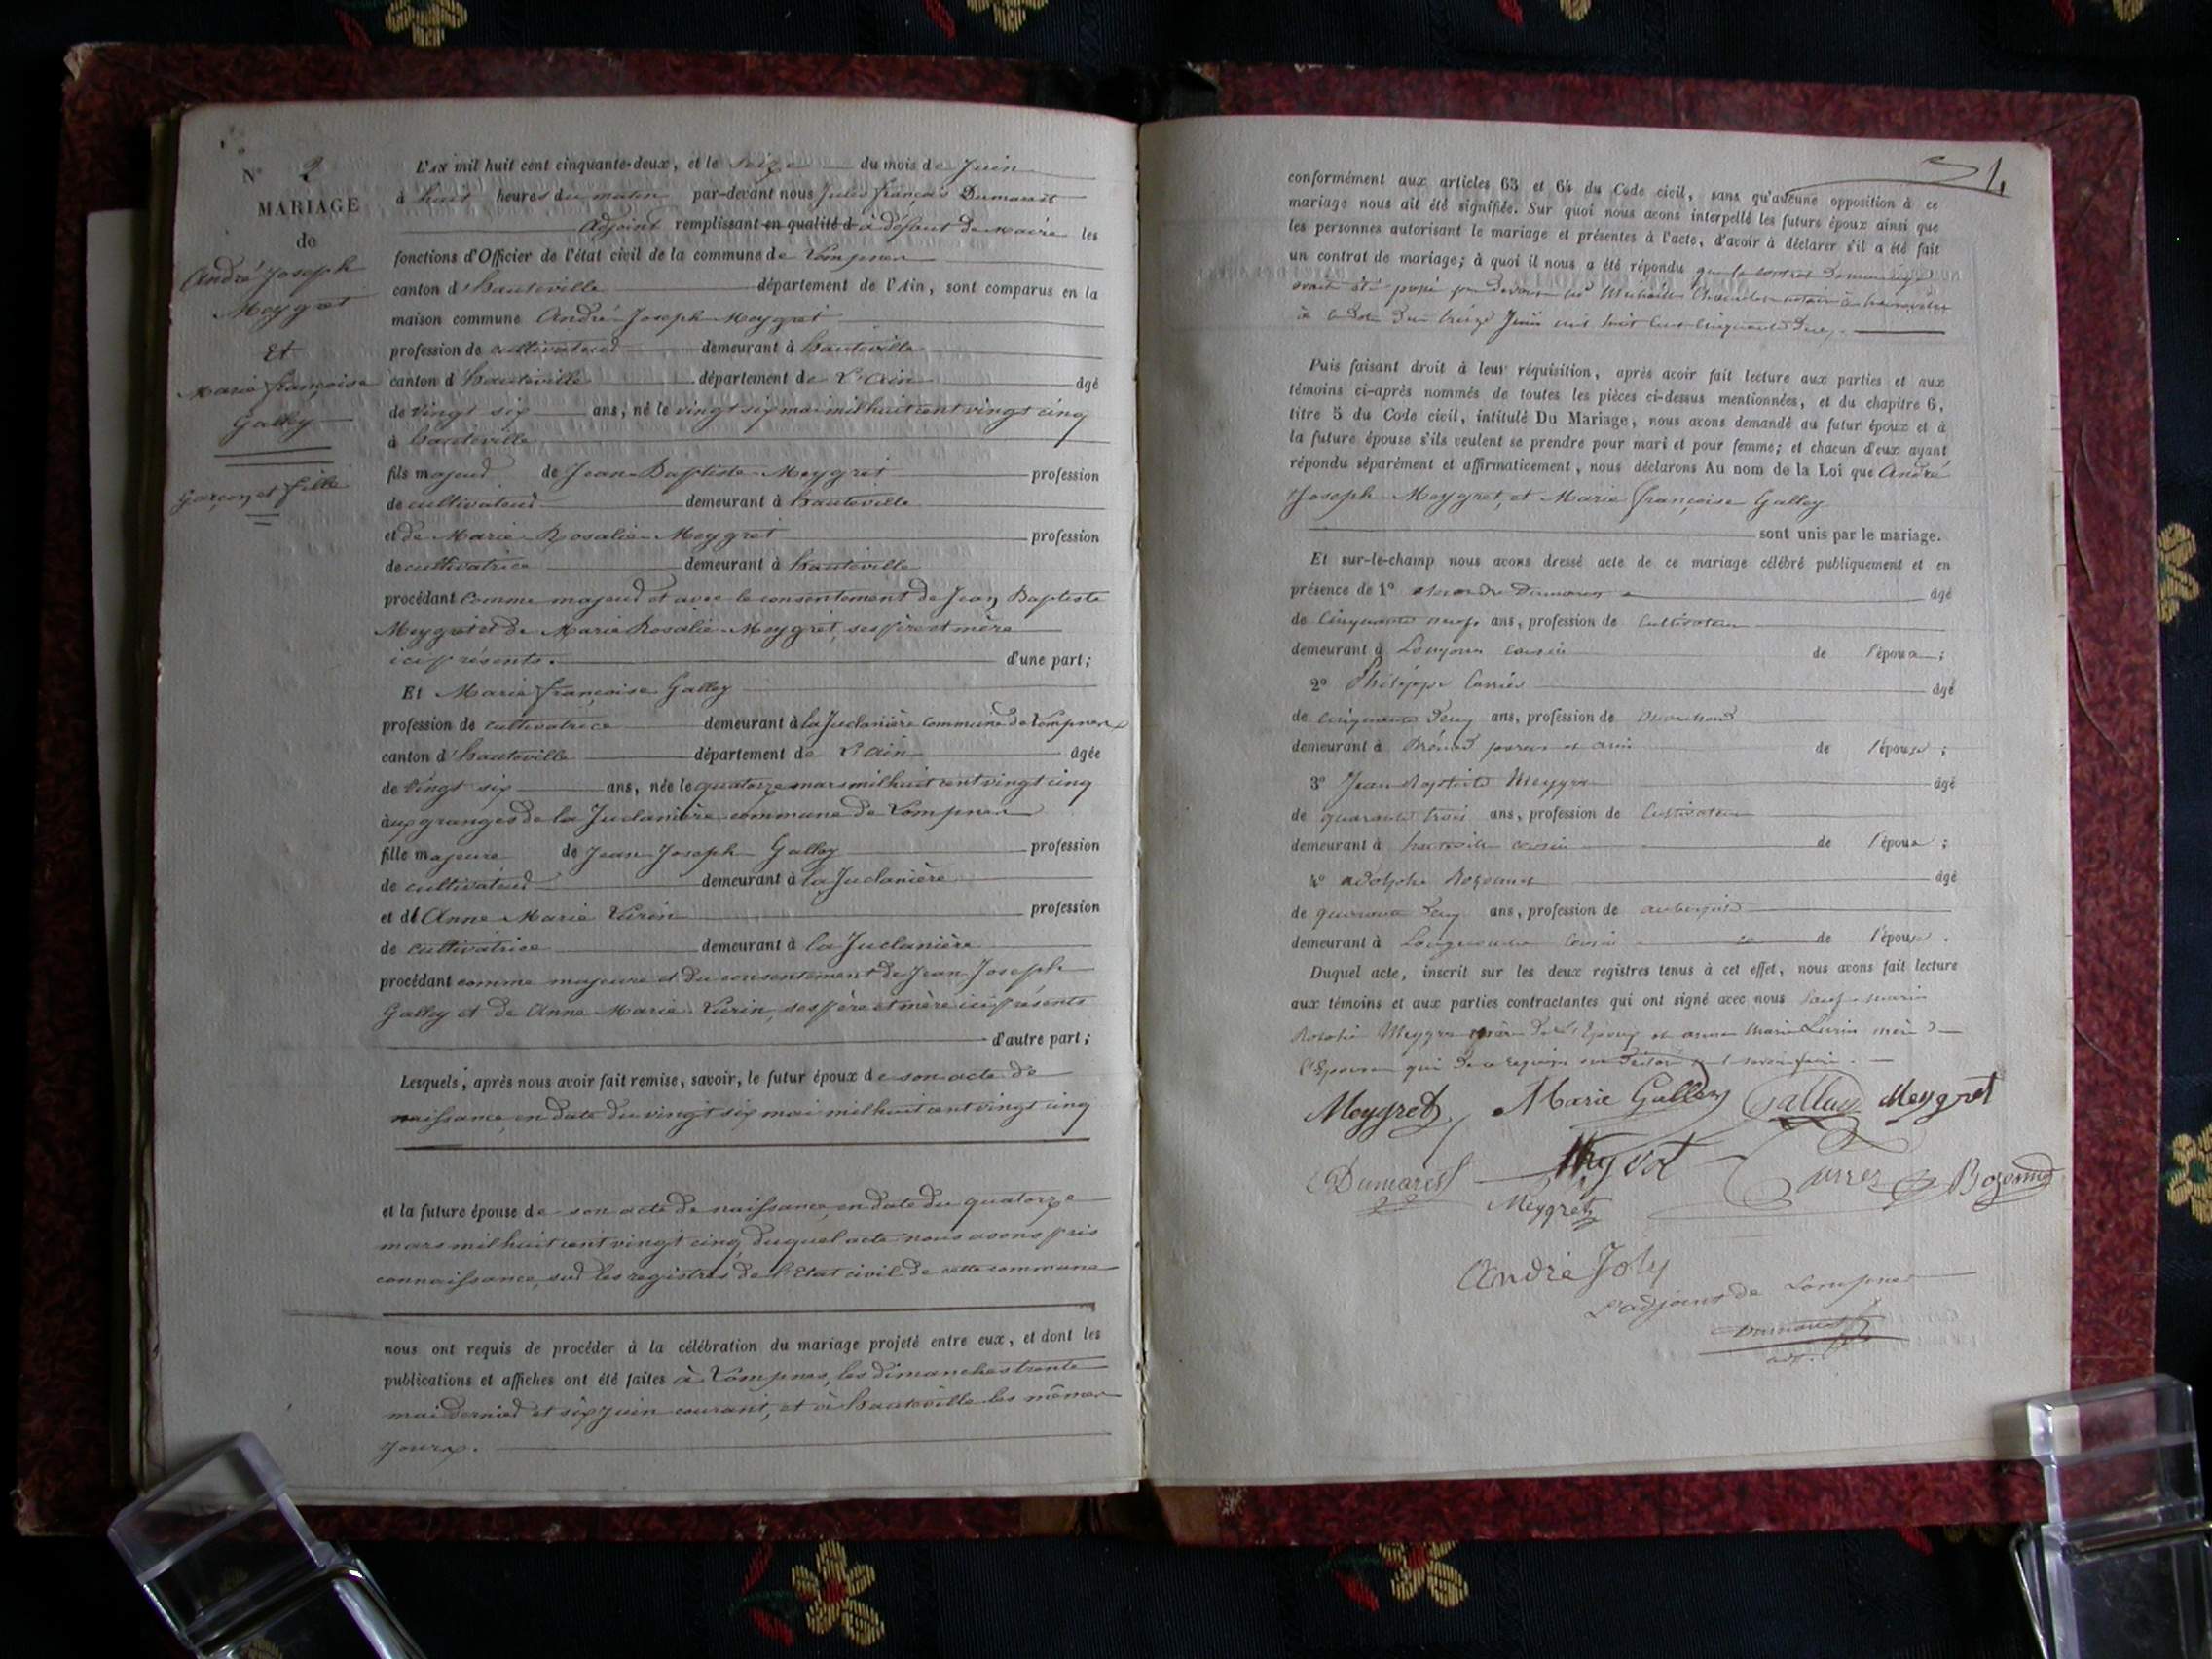 N° 2
MARIAGE
de
André Joseph
Meygret
Et
Marie françoise
Galley
garçon et fille
L'AN mil huit cent cinquante-deux, et le seize du mois de Juin
à huit heures du matin par-devant nous Jules françois Dumarest
Adjoint remplissant en qualité d à défaut de Maire les
fonctions d'Officier de l'état civil de la commune de Lompnes
canton d'hauteville département de l'Ain, sont comparus en la
maison commune André Joseph Meygret
profession de cultivateur demeurant à hauteville
canton d'hauteville département de L'Ain âgé
de vingt six ans, né le vingt six mai mil huit cent vingt cinq
à hauteville
fils majeur de Jean-Baptiste Meygret profession
de cultivateur demeurant à hauteville
et de Marie Rosalie Meygret profession
de cultivatrice demeurant à hauteville
procédant comme majeur et avec le consentement de Jean Baptiste
Meygret et de Marie Rosalie Meygret, ses père et mère
ici présents. d'une part;
Et Marie françoise Galley
profession de cultivatrice demeurant à la Juclanière commune de Lompnes
canton d'hauteville département de L'Ain âgée
de vingt six ans, née le quatorze mars mil huit cent vingt cinq
aux granges de la Juclanière commune de Lompnes
fille majeure de Jean Joseph Galley profession
de cultivateur demeurant à la Juclanière
et de Anne Marie Lurin profession
de cultivatrice demeurant à la Juclanière
procédant comme majeure et du consentement de Jean Joseph
Galley et de Anne Marie Lurin, ses père et mère ici présents
d'autre part;
Lesquels, après nous avoir fait remise, savoir, le futur époux de son acte de
naissance, en date du vingt six mai mil huit cent vingt cinq
et la future épouse de son acte de naissance, en date du quatorze
mars mil huit cent vingt cinq, duquel acte nous avons pris
connaissance, sur les registres de l'Etat civil de cette commune
nous ont requis de procéder à la célébration du mariage projeté entre eux, et dont les
publications et affiches ont été faites à Lompnes, les dimanches trente
mai dernier et six juin courant, et à hauteville les mêmes
jours.
1.
conformément aux articles 63 et 64 du Code civil, sans qu'aucune opposition à ce
mariage nous ait été signifiée. Sur quoi nous avons interpellé les futurs époux ainsi que
les personnes autorisant le mariage et présentes à l'acte, d'avoir à déclarer s'il a été fait
un contrat de mariage; à quoi il nous a été répondu que le contrat de mariage
avait été passé par devant notaire à hauteville
à la date du treize Juin mil huit cent cinquante deux.
Puis faisant droit à leur réquisition, après avoir fait lecture aux parties et aux
témoins ci-après nommés de toutes les pièces ci-dessus mentionnées, et du chapitre 6,
titre 5 du Code civil, intitulé Du Mariage, nous avons demandé au futur époux et à
la future épouse s'ils veulent se prendre pour mari et pour femme; et chacun d'eux ayant
répondu séparément et affirmativement, nous déclarons Au nom de la Loi que André
Joseph Meygret, et Marie françoise Galley
sont unis par le mariage.
Et sur-le-champ nous avons dressé acte de ce mariage célébré publiquement et en
présence de 1° Dumarest âgé
de cinquante neuf ans, profession de Cultivateur
demeurant à Lompnes cousin de l'épouse;
2° Philippe Carrier âgé
de cinquante deux ans, profession de marchand
demeurant à Brénod parrain et ami de l'épouse;
3° Jean Baptiste Meygret âgé
de quarante trois ans, profession de Cultivateur
demeurant à hauteville cousin de l'époux;
4° adolphe Bozonnet âgé
de quarante deux ans, profession de aubergiste
demeurant à cousin de l'épouse.
Duquel acte, inscrit sur les deux registres tenus à cet effet, nous avons fait lecture
aux témoins et aux parties contractantes qui ont signé avec nous sauf marie
Rosalie Meygret mère de l'Epoux et anne Marie Lurin mère de
l'Epouse qui de ce requises ont déclaré ne le savoir faire.
Meygret Marie Galley Gallay Meygret
Dumarest Meygret Carrier Bozonnet
Meygret
André Joly
L'adjoint de Lompnes
Dumarest
adj.